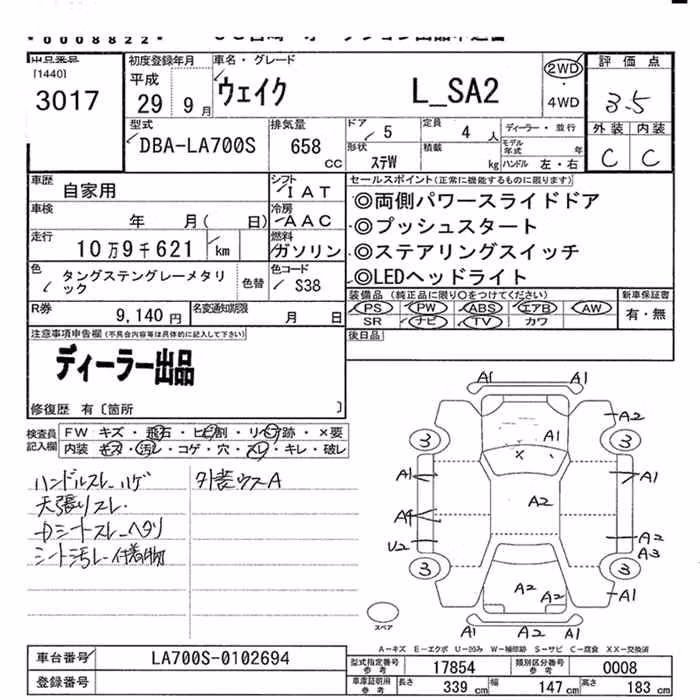 *0008822*
[1440]
3017
初度登録年月
平成
29 9月
車名・グレード
ウェイク L_SA2
2WD
・
4WD
評価点
3.5
外装 内装
C C
型式
DBA-LA700S
排気量
658 cc
ドア 5
定員 4人
ディーラー・並行
形状 ステW
積載 kg
モデル年式 年
ハンドル 左・右
車歴 自家用
シフト IAT
車検 年 月( 日)
冷房 AAC
走行 10万9千621 km
燃料 ガソリン
色 タングステングレーメタリック
色替
色コード S38
R券 9,140円
名変通知期限 月 日
セールスポイント(正常に機能するものに限ります)
◎両側パワースライドドア
◎プッシュスタート
◎ステアリングスイッチ
◎LEDヘッドライト
装備品 (純正品に限り○をつけてください)
PS PW ABS エアB AW
SR ナビ TV カワ
新車保証書
有・無
後日品
注意事項申告欄(不具合内容等は具体的に記入して下さい)
ディーラー出品
修復歴 有〔箇所 〕
検査員記入欄
FW キズ・飛石・ヒビ割・リペア跡・×要
内装 キズ・汚れ・コゲ・穴・スレ・キレ・破レ
ハンドルスレ ハゲ
天張りスレ
Dシートスレ ヘタリ
シート汚レ 付着物
外装ウスA
A1 A1
A2
3 A1 3
×
A1 A1
A2
A1
U2 A2
A3
3 3
A2 A2
A2 A2
A1 A1
スペア
A-キズ E-エクボ U-凹み W-補修跡 S-サビ C-腐食 XX-交換済
車台番号 LA700S-0102694
登録番号
型式指定番号 参考 17854
類別区分番号 参考 0008
車庫証明用 参考 長さ 339cm 幅 147cm 高さ 183cm